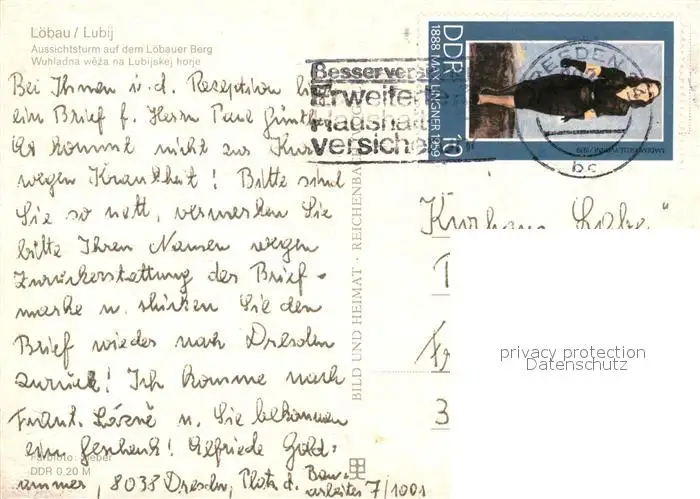 Löbau / Lubij
Aussichtsturm auf dem Löbauer Berg
Wuhladna wěža na Lubijskej horje
Bei Ihnen i. d. Rezeption
ein Brief f. Herrn Paul
Es kommt nicht zur Kur
wegen Krankheit! Bitte sind
Sie so nett, vermerken Sie
bitte Ihren Namen wegen
Zurückerstattung der Brief-
marke u. shicken Sie den
Brief wieder nach Dresden
zurück! Ich komme nach
Frant. Lázně u. Sie bekommen
ein Geschenk! Elfriede Gold-
ammer, 8038 Dresden, Platz d. Bau-
arbeiter 7/1001
DDR 0,20 M
BILD UND HEIMAT · REICHENBA
DDR
1888 MAX LINGNER 1959
10
DRESDEN
bc
Besservers
Erweiterte
Haushalt
versiche
Kurhaus
3
privacy protection
Datenschutz